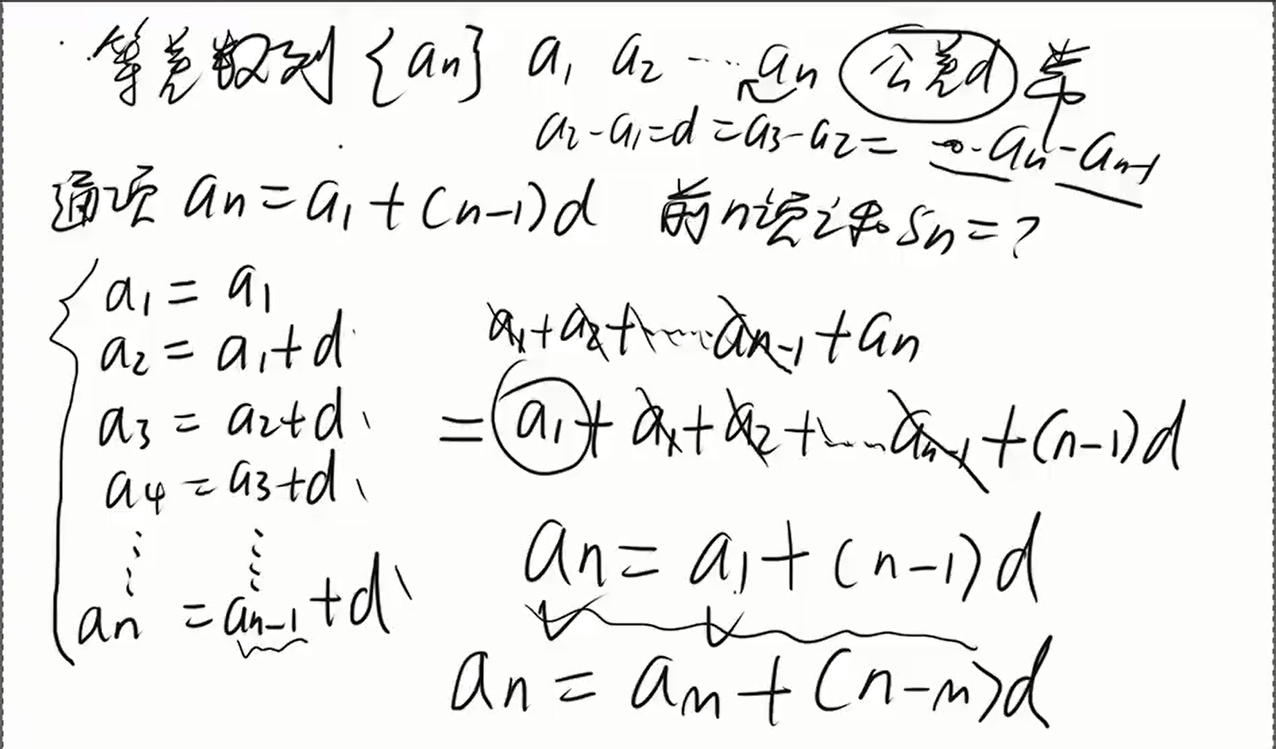 等差数列 {an} a₁ a₂ ⋯ an 公差d 常
a₂-a₁=d=a₃-a₂= ⋯ an-an-1
通项 an=a₁+(n-1)d 前n项求Sn=?
a₁=a₁
a₂=a₁+d
a₃=a₂+d
a₄=a₃+d
⋮ ⋮
an=an-1+d
a₁+a₂+⋯⋯an-1+an
=a₁+a₁+a₂+⋯⋯an-1+(n-1)d
an=a₁+(n-1)d
an=am+(n-m)d